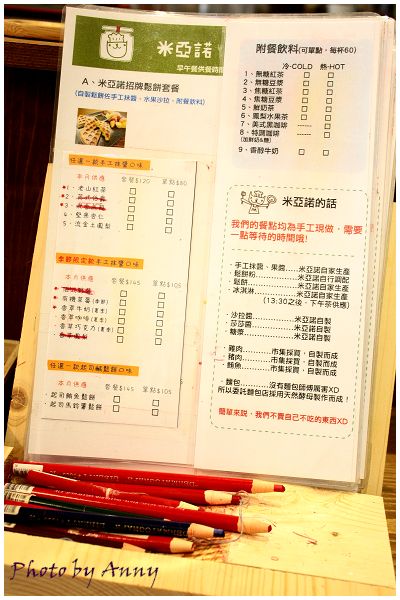 米亞諾
早午餐供餐時間
A、米亞諾招牌鬆餅套餐
(自製鬆餅佐手工抹醬，水果沙拉，附餐飲料)
任選一款手工抹醬口味
本月供應 套餐$120 單點$80
1．老山紅茶
4．堅果杏仁
5．流金土鳳梨
季節限定款手工抹醬口味
本月供應 套餐$145 單點$105
有機茶葉(春節)
香草牛奶(夏季)
香草咖啡(夏季)
香草巧克力(夏季)
任選一款起司鹹鬆餅口味
本月供應 套餐$145 單點$105
．起司鮪魚鬆餅
．起司馬鈴薯鬆餅
附餐飲料(可單點，每杯60)
冷-COLD 熱-HOT
1、無糖紅茶
2、無糖豆漿
3、焦糖紅茶
4、焦糖豆漿
5、鮮奶茶
6、鳳梨水果茶
7、美式黑咖啡 ------
8、特調咖啡 ------
(加鮮奶&糖)
9、香醇牛奶
米亞諾的話
我們的餐點均為手工現做，需要
一點等待的時間哦!
．手工抹醬、果醬......米亞諾自家生產
．鬆餅粉..................米亞諾自行調配
．鬆餅.....................米亞諾自家生產
．冰淇淋..................米亞諾自家生產
(13:30之後，下午茶供應)
．沙拉醬..................米亞諾自製
．莎莎醬..................米亞諾自製
．糖漿.....................米亞諾自製
．雞肉..................市集採買，自製而成
．豬肉..................市集採買，自製而成
．鮪魚..................市集採買，自製而成
．麵包............沒有麵包師傅厲害XD
所以委託麵包店採用天然酵母製作而成！
簡單來說，我們不賣自己不吃的東西XD
Photo by Anny